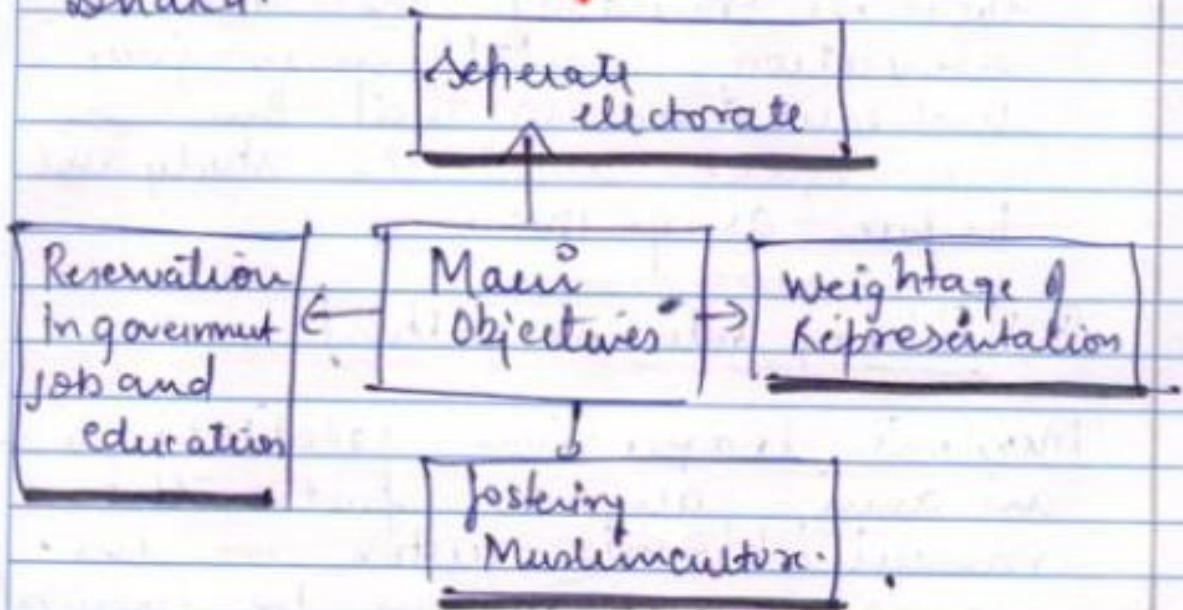 Dhaka.
Seperate
electorate
Reservation
in government
job and
education
Main
Objectives
Weightage of
Representation
fostering
Muslim culture.